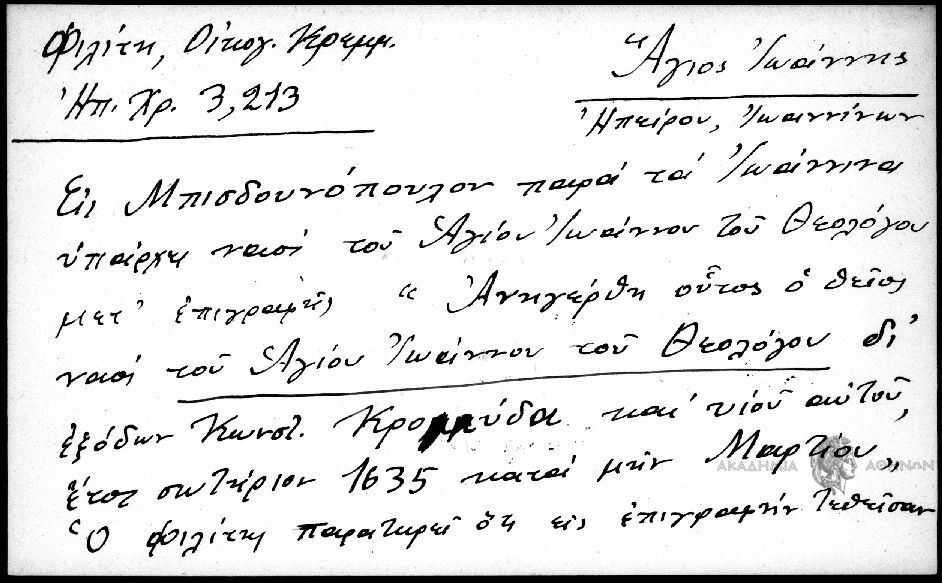 Φιλίτη, Οἰκογ. Κρεμμ.
Ἠπ. Χρ. 3, 213
Ἅγιος Ἰωάννης
Ἠπείρου, Ἰωαννίνων
Εἰς Μπισδουνόπουλον παρὰ τὰ Ἰωάννινα
ὑπάρχει ναὸς τοῦ Ἁγίου Ἰωάννου τοῦ Θεολόγου
μετ' ἐπιγραφῆς « Ἀνηγέρθη οὗτος ὁ θεῖος
ναὸς τοῦ Ἁγίου Ἰωάννου τοῦ Θεολόγου δι'
ἐξόδων Κωνστ. Κρομμύδα καὶ υἱοῦ αὐτοῦ,
ἔτος σωτήριον 1635 κατὰ μῆνα Μαρτίου»
Ὁ Φιλίτης παρατηρεῖ ὅτι εἰς ἐπιγραφὴν τεθεῖσαν
ΑΚΑΔΗΜΙΑ ΑΘΗΝΩΝ